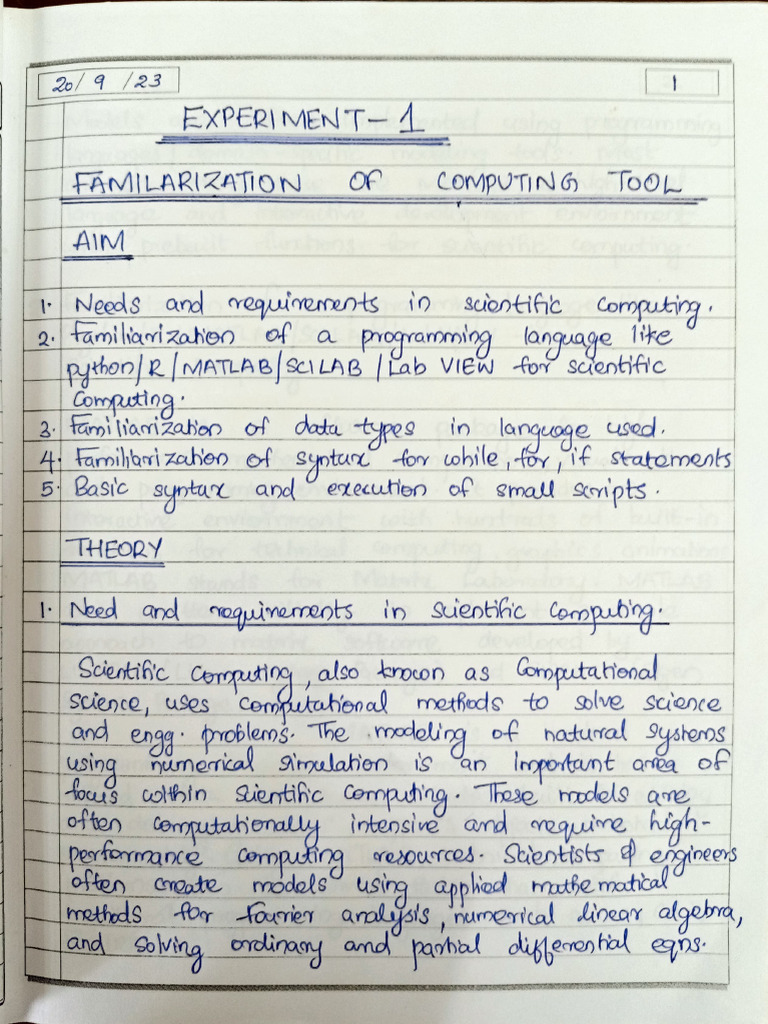 20/9/23
1
EXPERIMENT-1
FAMILARIZATION OF COMPUTING TOOL
AIM
1. Needs and requirements in scientific computing.
2. Familiarization of a programming language like
python/R/MATLAB/SCILAB/Lab VIEW for scientific
computing.
3. Familiarization of data types in language used.
4. Familiarization of syntax for while, for, if statements
5. Basic syntax and execution of small scripts.
THEORY
1. Need and requirements in scientific computing.
Scientific computing, also known as computational
science, uses computational methods to solve science
and engg. problems. The modeling of natural systems
using numerical simulation is an important area of
focus within scientific computing. These models are
often computationally intensive and require high-
performance computing resources. Scientists & engineers
often create models using applied mathematical
methods for fourier analysis, numerical linear algebra,
and solving ordinary and partial differential eqns.